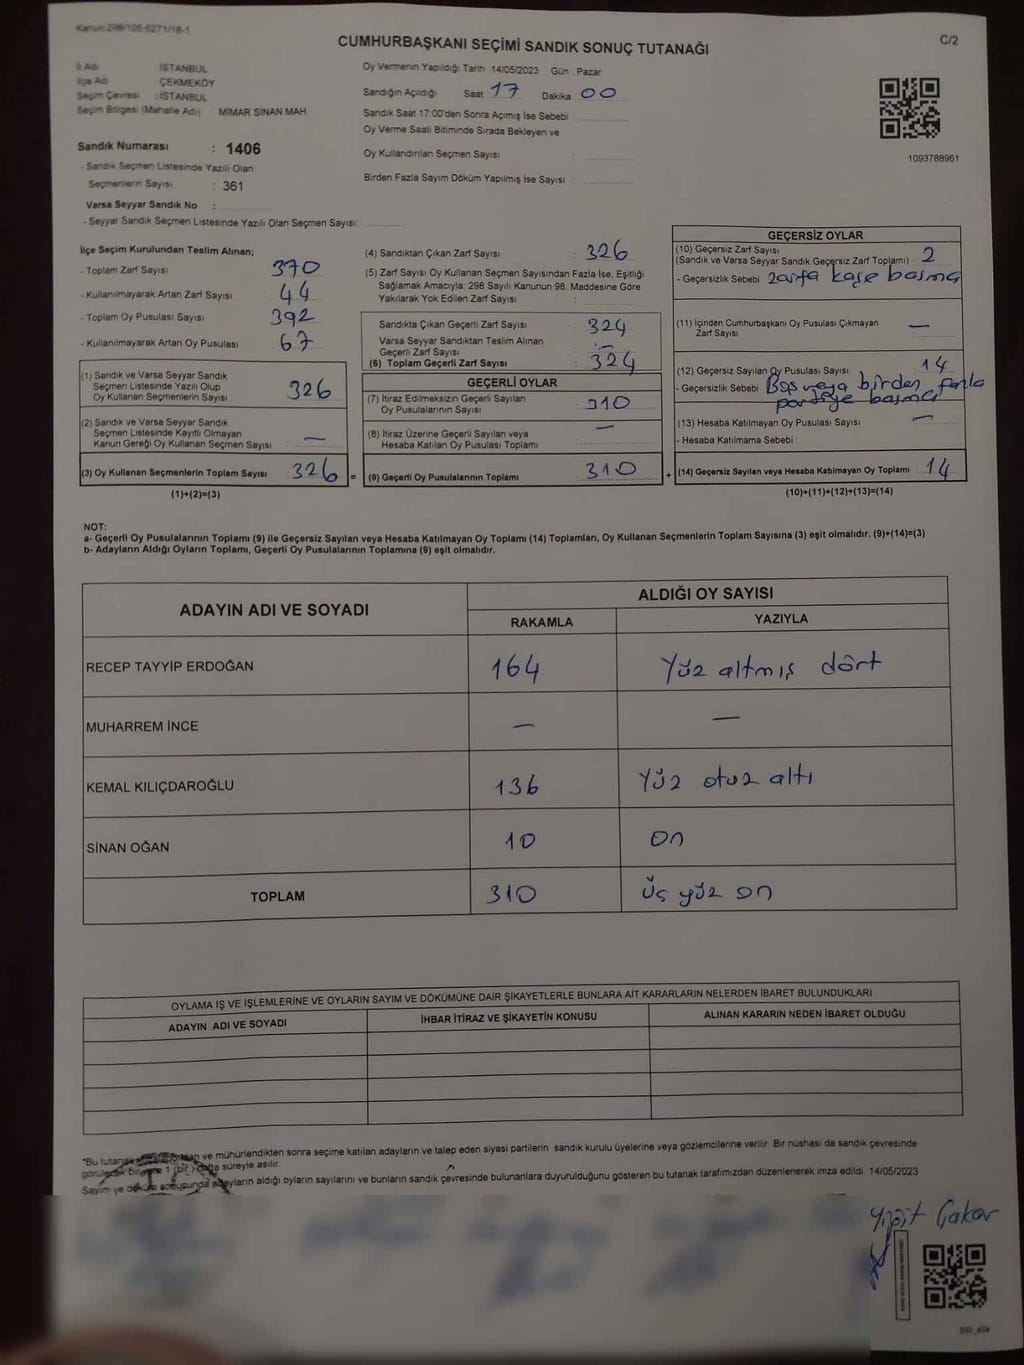 Kanun:298/105;6271/18-1
C/2
CUMHURBAŞKANI SEÇİMİ SANDIK SONUÇ TUTANAĞI
İl Adı : İSTANBUL
İlçe Adı : ÇEKMEKÖY
Seçim Çevresi : İSTANBUL
Seçim Bölgesi (Mahalle Adı) MİMAR SİNAN MAH
Sandık Numarası : 1406
- Sandık Seçmen Listesinde Yazılı Olan
Seçmenlerin Sayısı : 361
Varsa Seyyar Sandık No :
- Seyyar Sandık Seçmen Listesinde Yazılı Olan Seçmen Sayısı:
Oy Vermenin Yapıldığı Tarih :14/05/2023 Gün : Pazar
Sandığın Açıldığı Saat 17 Dakika 00
Sandık Saat 17:00'den Sonra Açımış İse Sebebi :
Oy Verme Saati Bitiminde Sırada Bekleyen ve
Oy Kullandırılan Seçmen Sayısı :
Birden Fazla Sayım Döküm Yapılmış İse Sayısı :
1093788961
İlçe Seçim Kurulundan Teslim Alınan;
- Toplam Zarf Sayısı : 370
- Kullanılmayarak Artan Zarf Sayısı : 44
- Toplam Oy Pusulası Sayısı : 392
- Kullanılmayarak Artan Oy Pusulası : 67
(1) Sandık ve Varsa Seyyar Sandık
Seçmen Listesinde Yazılı Olup
Oy Kullanan Seçmenlerin Sayısı : 326
(2) Sandık ve Varsa Seyyar Sandık
Seçmen Listesinde Kayıtlı Olmayan
Kanun Gereği Oy Kullanan Seçmen Sayısı : —
(3) Oy Kullanan Seçmenlerin Toplam Sayısı : 326 =
(1)+(2)=(3)
(4) Sandıktan Çıkan Zarf Sayısı : 326
(5) Zarf Sayısı Oy Kullanan Seçmen Sayısından Fazla İse, Eşitliği
Sağlamak Amacıyla; 298 Sayılı Kanunun 98. Maddesine Göre
Yakılarak Yok Edilen Zarf Sayısı :
Sandıkta Çıkan Geçerli Zarf Sayısı : 324
Varsa Seyyar Sandıktan Teslim Alınan
Geçerli Zarf Sayısı : —
(6) Toplam Geçerli Zarf Sayısı : 324
GEÇERLİ OYLAR
(7) İtiraz Edilmeksizin Geçerli Sayılan
Oy Pusulalarının Sayısı : 310
(8) İtiraz Üzerine Geçerli Sayılan veya
Hesaba Katılan Oy Pusulası Toplamı : —
(9) Geçerli Oy Pusulalarının Toplamı : 310 +
GEÇERSİZ OYLAR
(10) Geçersiz Zarf Sayısı
(Sandık ve Varsa Seyyar Sandık Geçersiz Zarf Toplamı) : 2
- Geçersizlik Sebebi : zarfa kaşe basma
(11) İçinden Cumhurbaşkanı Oy Pusulası Çıkmayan
Zarf Sayısı : —
(12) Geçersiz Sayılan Oy Pusulası Sayısı : 14
- Geçersizlik Sebebi : Boş veya birden fazla
partiye basma
(13) Hesaba Katılmayan Oy Pusulası Sayısı : —
- Hesaba Katılmama Sebebi :
(14) Geçersiz Sayılan veya Hesaba Katılmayan Oy Toplamı : 14
(10)+(11)+(12)+(13)=(14)
NOT:
a- Geçerli Oy Pusulalarının Toplamı (9) ile Geçersiz Sayılan veya Hesaba Katılmayan Oy Toplamı (14) Toplamları, Oy Kullanan Seçmenlerin Toplam Sayısına (3) eşit olmalıdır. (9)+(14)=(3)
b- Adayların Aldığı Oyların Toplamı, Geçerli Oy Pusulalarının Toplamına (9) eşit olmalıdır.
ADAYIN ADI VE SOYADI ALDIĞI OY SAYISI
RAKAMLA YAZIYLA
RECEP TAYYİP ERDOĞAN 164 Yüz altmış dört
MUHARREM İNCE — —
KEMAL KILIÇDAROĞLU 136 Yüz otuz altı
SİNAN OĞAN 10 on
TOPLAM 310 üç yüz on
OYLAMA İŞ VE İŞLEMLERİNE VE OYLARIN SAYIM VE DÖKÜMÜNE DAİR ŞİKAYETLERLE BUNLARA AİT KARARLARIN NELERDEN İBARET BULUNDUKLARI
ADAYIN ADI VE SOYADI İHBAR İTİRAZ VE ŞİKAYETİN KONUSU ALINAN KARARIN NEDEN İBARET OLDUĞU
*Bu tutanak ve mühürlendikten sonra seçime katılan adayların ve talep eden siyasi partilerin sandık kurulu üyelerine veya gözlemcilerine verilir. Bir nüshası da sandık çevresinde
görülecek bir yere 1 (bir) hafta süreyle asılır.
Sayım ve döküm sonucunda adayların aldığı oyların sayılarını ve bunların sandık çevresinde bulunanlara duyurulduğunu gösteren bu tutanak tarafımızdan düzenlenerek imza edildi. 14/05/2023
Yiğit Çakar